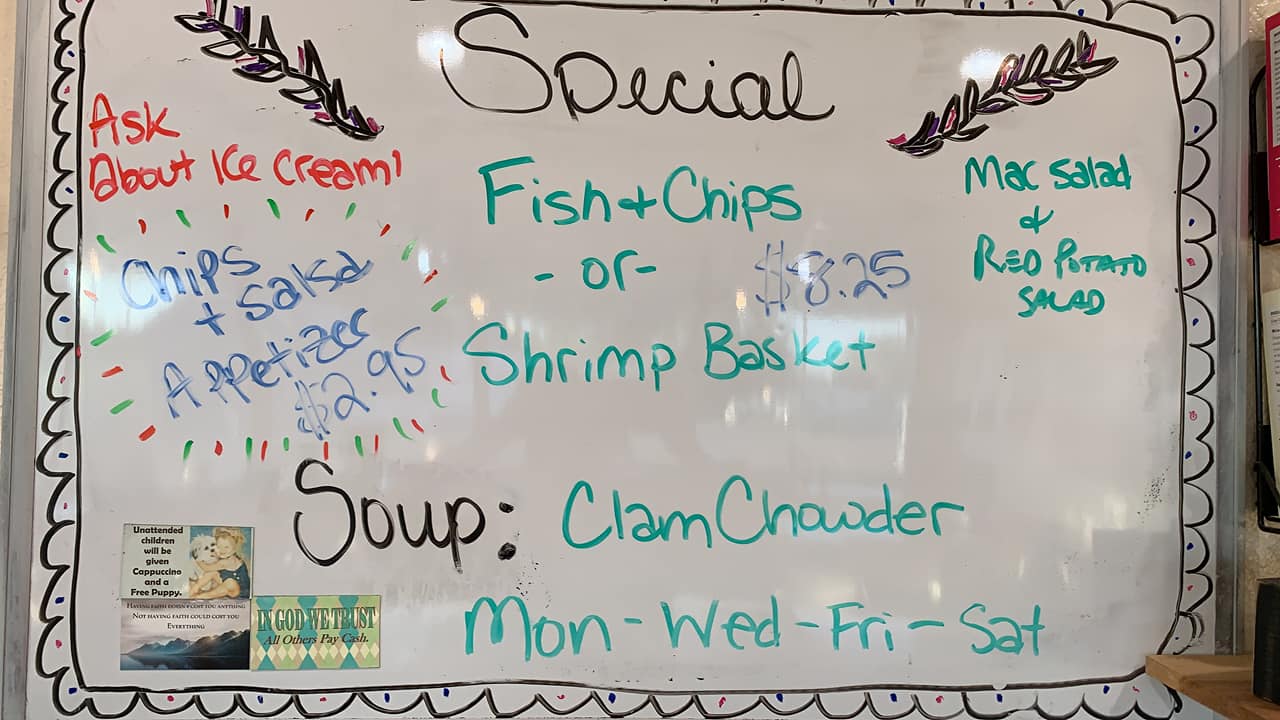 Special
Ask
About Ice Cream!
Chips
+ Salsa
Appetizer
$2.95
Fish + Chips
- or -
$8.25
Shrimp Basket
Mac Salad
&
Red Potato
Salad
Soup: Clam Chowder
Mon - Wed - Fri - Sat
Unattended
children
will be
given
Cappuccino
and a
Free Puppy.
Having faith doesn't cost you anything
Not having faith could cost you
Everything
IN GOD WE TRUST
All Others Pay Cash.